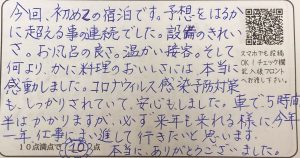 今回、初めての宿泊です。予想をはるか
に超える事の連続でした。設備のきれい
さ。お風呂の良さ。温かい接客。そして
何より、かに料理のおいしさには、本当に
感動しました。コロナウィルス感染予防対策
も、しっかりされていて、安心もしました。車で5時間
半はかかりますが、必ず来年も来れる様に今年
一年仕事にまい進して行きたいと思います。
本当に、ありがとうございました。
10点満点で 10 点
スマホでも投稿
OK!チェック欄
記入後フロント
へお渡し下さい。